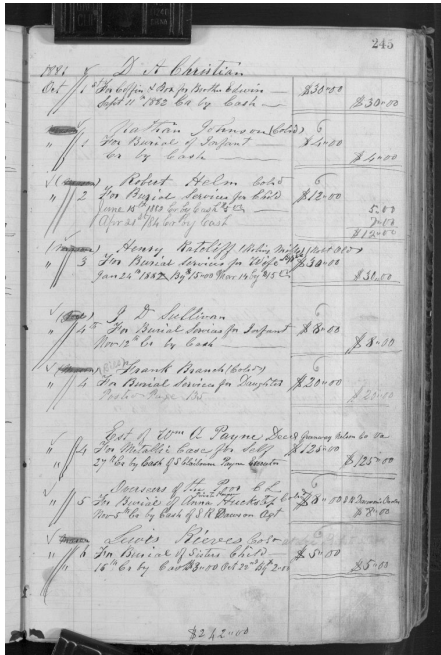 245
D A Christian
Oct 1st For Coffin & Box for Brother Edwin $30.00
Sept 11th 1882 Cr by Cash $30.00
Nathan Johnson (Cold) 6
" 1 For Burial of Infant $4.00
Cr by Cash $4.00
Robert Helm Cold 6
" 2 For Burial Services for Child $12.00
June 15th 1883 Cr by Cash 5 5.00
Apr 21st 84 Cr by Cash 7.00
$12.00
Henry Ratcliff
" 3 For Burial Services for Wife $30.00
Jan 24th 1882 By 15.00 Mar 14 by $15 $30.00
J D Sullivan 6
" 4th For Burial Services for Infant $8.00
Nov 12th Cr by Cash $8.00
Frank Branch (Cold) 6
" 4 For Burial Services for Daughter $20.00
Page $20.00
Est of Wm A Payne Decd
" 4 For Metallic Case for Self $125.00
27th Cr by Cash of S Payne Executor $125.00
Overseers of the Poor
" 5 For Burial of Anna Cold $8.00
Nov 5th Cr by Cash of S R Dawson Agt $8.00
Lewis Reeves Cold
" 6 For Burial of Sisters Child $5.00
16th Cr by Cash 3.00 Oct 22nd by 2.00 $5.00
$242.00